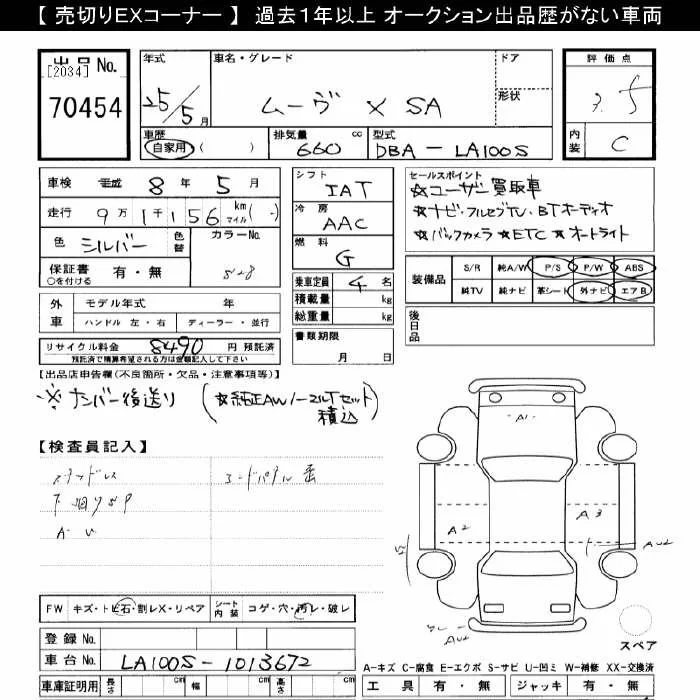 【 売切りEXコーナー 】 過去1年以上 オークション出品歴がない車両
出品 No. [2034] 70454
年式 25/5月
車名・グレード ムーヴ X SA
ドア
形状
評価点 3.5
内装 C
車歴 自家用 ( )
排気量 660 cc
型式 DBA-LA100S
車検 平成 8年 5月
走行 9万1千156 km マイル( - )
色 シルバー 色替
カラーNo.
保証書 有・無
○を付ける
外車 モデル年式 年
ハンドル 左・右 ディーラー・並行
リサイクル料金 8490 円 預託済
預託済で精算希望される方は金額記入して下さい
シフト IAT
冷房 AAC
燃料 G
乗車定員 4 名
積載量 kg
総重量 kg
書類期限
月 日
セールスポイント
☆ユーザー買取車
☆ナビ・フルセグTV・BTオーディオ
☆バックカメラ ☆ETC ☆オートライト
装備品 S/R 純A/W P/S P/W ABS
純TV 純ナビ 革シート 外ナビ エアB
後日品
【出品店申告欄(不良箇所・欠品・注意事項等)】
※ナンバー後送り (☆純正AWノーマルTセット積込)
【検査員記入】
スタッドレス
下廻りサP
A・U
A1
A2
A3
AU2
AU2
FW キズ・トビ石・割レX・リペア シート内装 コゲ・穴・汚レ・破レ
登録 No.
車台 No. LA100S-1013672
車庫証明用 長さ cm 幅 cm 高さ cm
スペア
A-キズ C-腐食 E-エクボ S-サビ U-凹ミ W-補修 XX-交換済
工具 有・無 ジャッキ 有・無